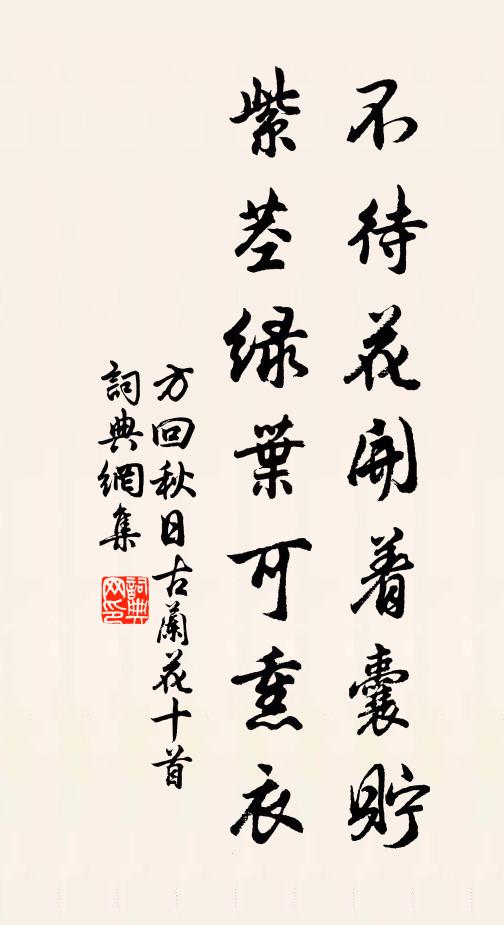 不待花開着囊貯
紫莖绿葉可熏衣
方回秋日古蘭花十首
詞典網集
詞典网印